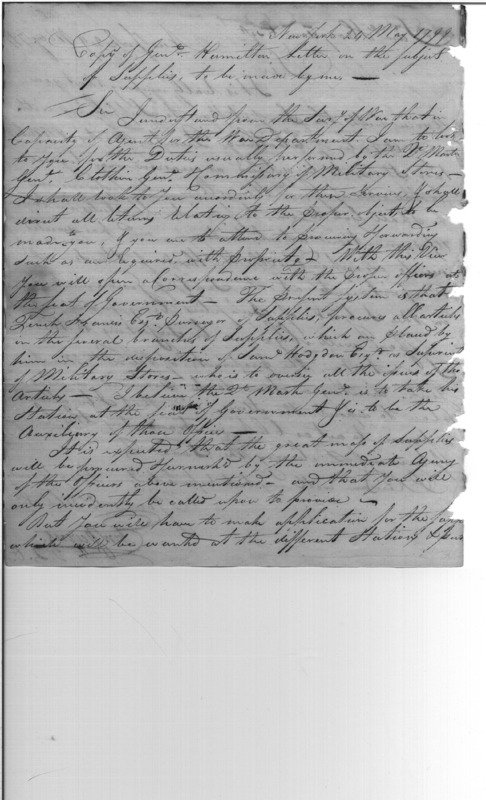 New York 24 May 1799
Copy of Genl. Hamilton letter on the subject
of Supplies, to be made by me —
Sir I understand from the Secy of War that in
Capacity of Agent for the War Department I am to look
to You for the Duties usually performed by the Qr. Mastr.
Genl. Clothier Genl. & Commissary of Military Stores —
I shall look to You accordingly for these Services, & shall
direct all returns Relative to the proper objects to be
made to you, & you are to attend to procuring & forwarding
such as are required with propriety. With this View
You will open a Correspondence with the proper officers at
the seat of Government — The present system is that
Tench Francis Esqr. Purveyor of Supplies, procures all articles
in the several branches of Supplies, which are placed by
him in the disposition of Saml. Hodgdon Esqr. as Superint
of Military Stores — who is to the issues of the
Articles — I believe the Qr. Mastr. Genl. is to take his
Station at the seat of Government & is to be the
Auxiliary of those Officers —
It is expected that the great mass of Supplies
will be procured & furnished by the immediate Agency
of the Officers above mentioned — and that You will
only incidently be called upon to provide —
But You will have to make application for the
which will be wanted at the different Stations &